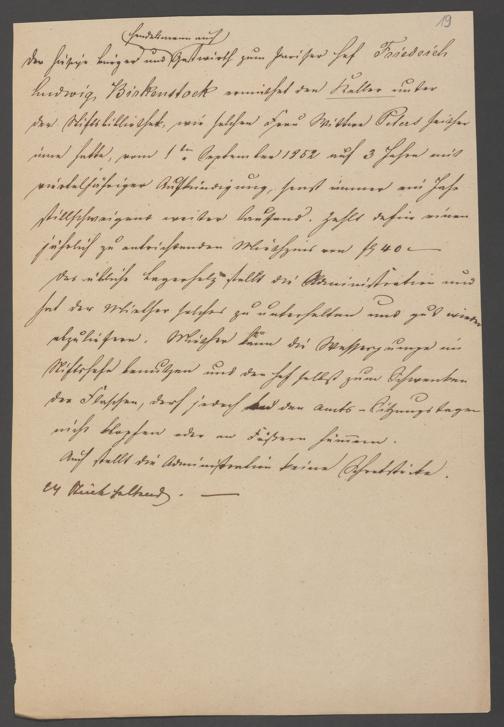 19
Handelsmann auch
Der hiesige Bürger und Gastwirth zum Pariser Hof Friedrich
Ludwig Birkenstock ermiethet den Keller unter
der Stiftsbibliothek, wie solchen Frau Wittwe Peters seither
inne hatte, vom 1ten September 1852 auf 3 Jahre mit
vierteljähriger Aufkündigung, sonst immer ein Jahr
stillschweigend weiter laufend. Zahlt dafür einen
jährlich zu entrichtenden Miethzins von f 40 —
Das übliche Lagerholz stellt die Administration und
hat der Miether solches zu unterhalten und gut wieder
abzuliefern. Miether kann die Wasserpumpe im
Stiftshofe benutzen und den Hof selbst zum Schwenken
der Flaschen, darf jedoch an den Amts-Sitzungstagen
nicht klopfen oder an Fässern hämmern.
Auch stellt die Administration keine
Stück haltend. —